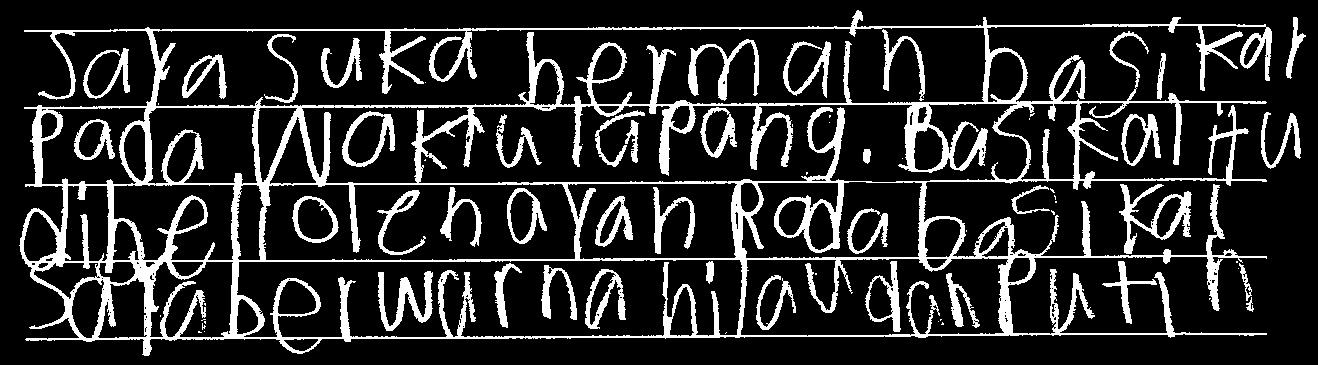 Saya suka bermain basikar
Pada Waktu lapang. Basikal itu
dibeli oleh ayah Roda basikal
Saya berwarna hilau dan Putih